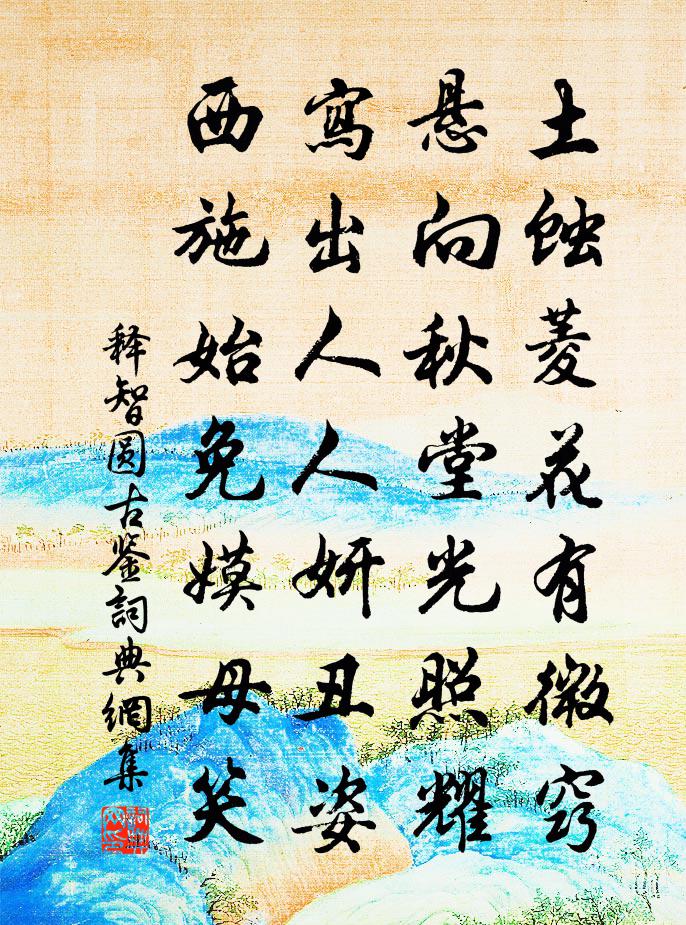 土蝕菱花有微窍
悬向秋堂光照耀
寫出人人妍丑姿
西施始免嫫母笑
释智圆古鉴詞典網集